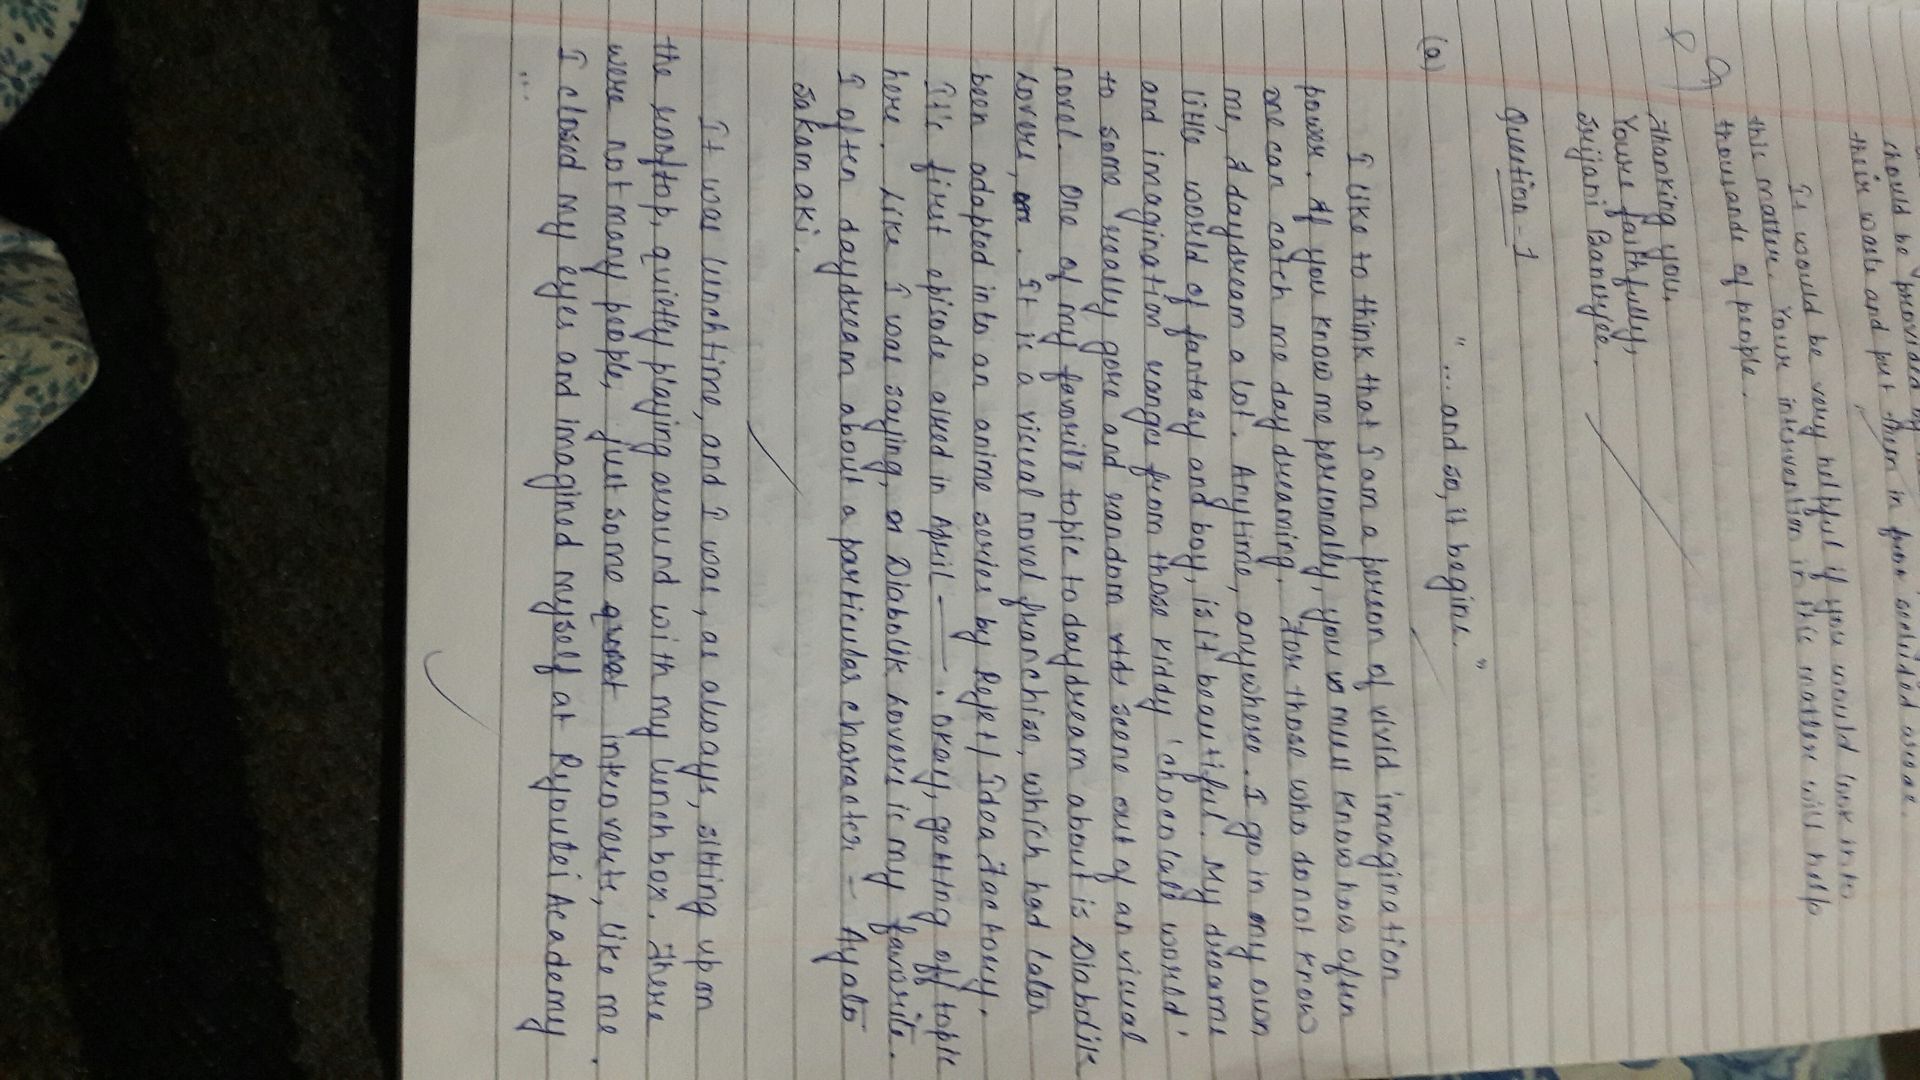 should be provided
their work and put them in
It would be very helpful if you would look into
this matter. Your intervention in this matter will help
thousands of people.
Thanking you,
Yours faithfully,
Srijani Banerjee.
Question - 1
(a) "....and so, it begins."
I like to think that I am a person of vivid imagination
power. If you know me personally, you must know how often
one can catch me day dreaming. For those who donot know
me, I daydream a lot. Anytime, anywhere. I go in my own
little world of fantasy and boy, is it beautiful. My dreams
and imagination ranges from those kiddy 'chocolate world'
to some really gore and random scene out of an visual
novel. One of my favorite topic to daydream about is Diabolik
Lovers, . It is a visual novel franchise, which had later
been adapted into an anime series by Rejet / Idea Factory.
It's first episode aired in April - ——. Okay, getting off topic
here. Like I was saying, Diabolik Lovers is my favorite.
I often daydream about a particular character - Ayato
Sakamaki.
It was lunchtime, and I was, as always, sitting upon
the rooftop, quietly playing around with my lunch box. There
were not many people, just some introverts, like me.
I closed my eyes and imagined myself at Ryoutei Academy
"...